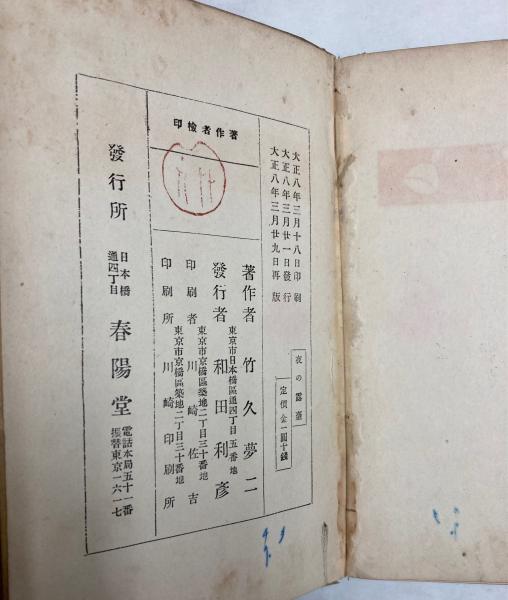 大正八年三月十八日印刷
大正八年三月廿一日發行
大正八年三月廿九日再版
夜の露臺
定價金一圓十錢
著作者檢印
著作者 竹久夢二
東京市日本橋區通四丁目五番地
發行者 和田利彥
東京市京橋區築地二丁目三十番地
印刷者 川崎佐吉
東京市京橋區築地二丁目三十番地
印刷所 川崎印刷所
發行所 日本橋通四丁目 春陽堂
電話本局五十一番
振替東京一六一七